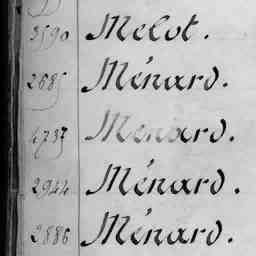 3590 Melot.
2685 Ménard.
4737 Menard.
2944 Ménard.
2886 Ménard.